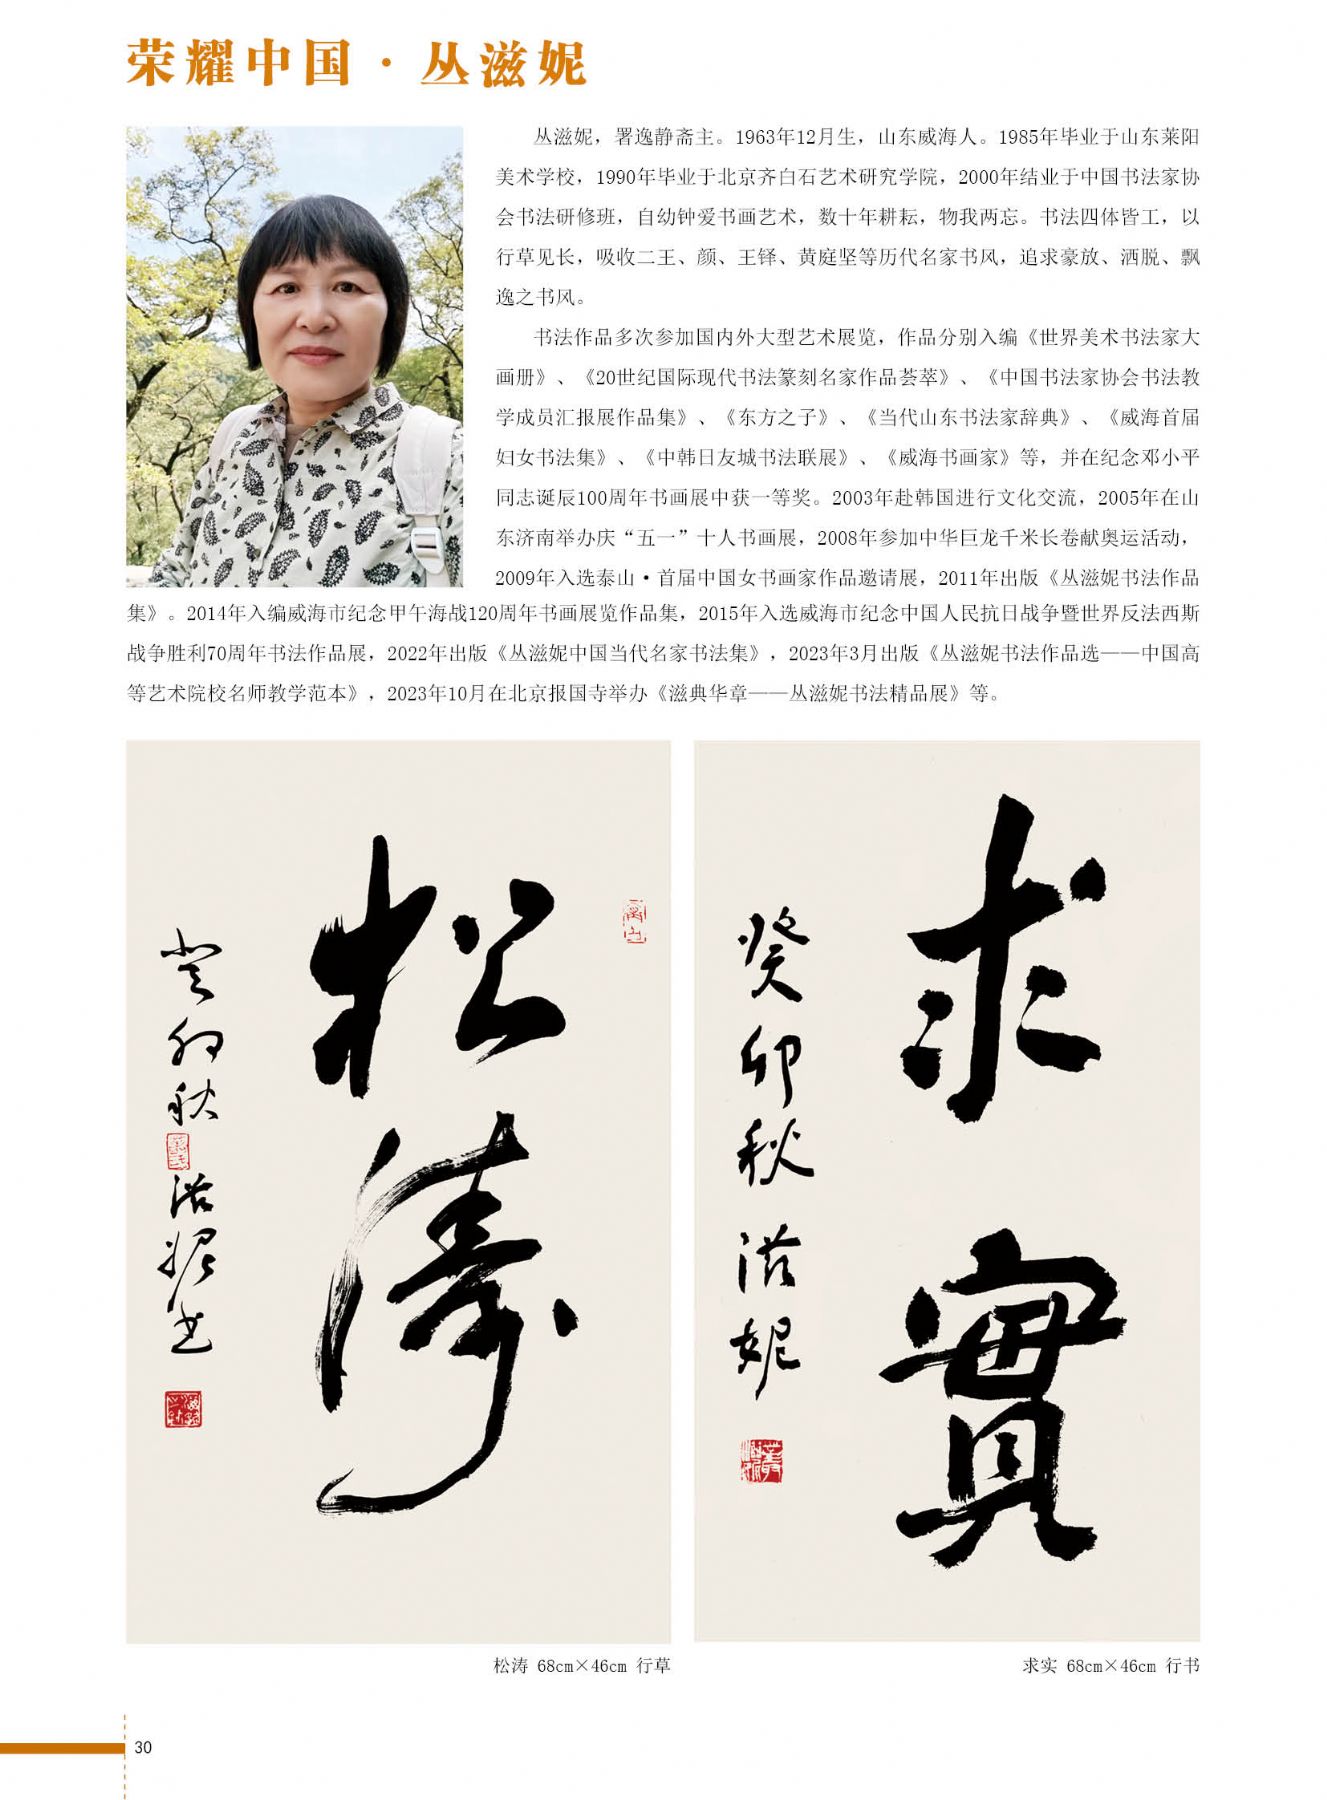 荣耀中国·丛滋妮
丛滋妮，署逸静斋主。1963年12月生，山东威海人。1985年毕业于山东莱阳
美术学校，1990年毕业于北京齐白石艺术研究学院，2000年结业于中国书法家协
会书法研修班，自幼钟爱书画艺术，数十年耕耘，物我两忘。书法四体皆工，以
行草见长，吸收二王、颜、王铎、黄庭坚等历代名家书风，追求豪放、洒脱、飘
逸之书风。
书法作品多次参加国内外大型艺术展览，作品分别入编《世界美术书法家大
画册》、《20世纪国际现代书法篆刻名家作品荟萃》、《中国书法家协会书法教
学成员汇报展作品集》、《东方之子》、《当代山东书法家辞典》、《威海首届
妇女书法集》、《中韩日友城书法联展》、《威海书画家》等，并在纪念邓小平
同志诞辰100周年书画展中获一等奖。2003年赴韩国进行文化交流，2005年在山
东济南举办庆“五一”十人书画展，2008年参加中华巨龙千米长卷献奥运活动，
2009年入选泰山·首届中国女书画家作品邀请展，2011年出版《丛滋妮书法作品
集》。2014年入编威海市纪念甲午海战120周年书画展览作品集，2015年入选威海市纪念中国人民抗日战争暨世界反法西斯
战争胜利70周年书法作品展，2022年出版《丛滋妮中国当代名家书法集》，2023年3月出版《丛滋妮书法作品选——中国高
等艺术院校名师教学范本》，2023年10月在北京报国寺举办《滋典华章——丛滋妮书法精品展》等。
松涛
癸卯秋 滋妮书
求實
癸卯秋 滋妮
松涛 68cm×46cm 行草
求实 68cm×46cm 行书
30